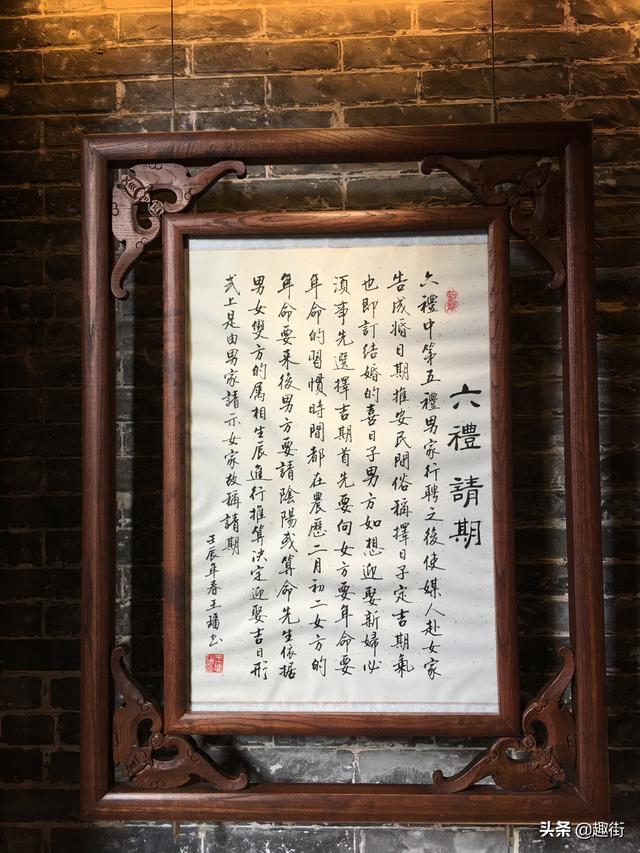 六禮 請期
六禮中第五禮男家行聘之後使媒人赴女家
告成婚日期推安民間俗稱擇日子定吉期氣
也即訂結婚的喜日子男方如想迎娶新婦必
湏事先選擇吉期首先要向女方要年命要
年命的習慣時間都在農歷二月初二女方的
年命要来後男方要請陰陽或算命先生依据
男女雙方的属相生辰進行推算決定迎娶吉日形
式上是由男家請示女家故稱請期
壬辰年春王璠书
头条 @趣街